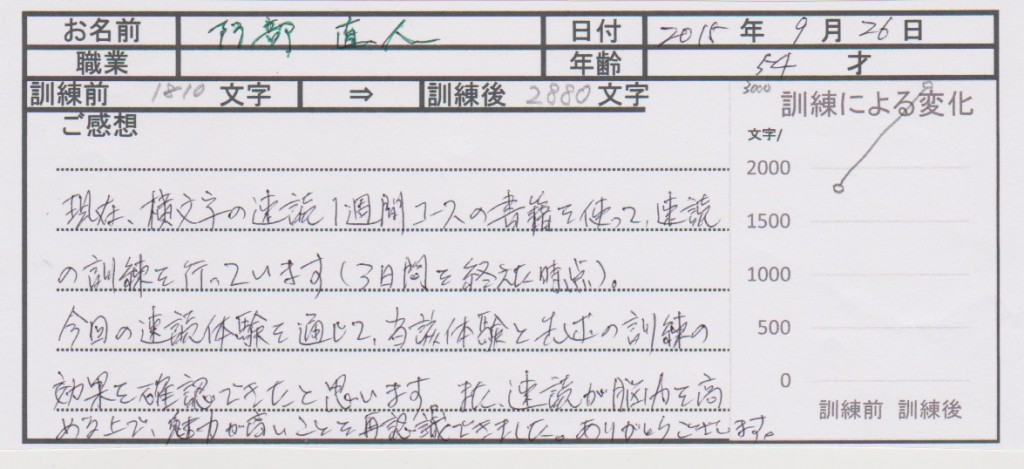 お名前 阿部 直人 日付 2015 年 9 月 26 日
職業 年齢 54 才
訓練前 1810 文字 ⇒ 訓練後 2880 文字
ご感想
現在、横文字の速読1週間コースの書籍を使って、速読
の訓練を行っています(3日間を終えた時点)。
今回の速読体験を通じて、当該体験と先述の訓練の
効果を確認できたと思います。また、速読が脳力を高
める上で、魅力が高いことを再認識できました。ありがとうございます。
3000 訓練による変化
文字/
2000
1500
1000
500
0
訓練前 訓練後